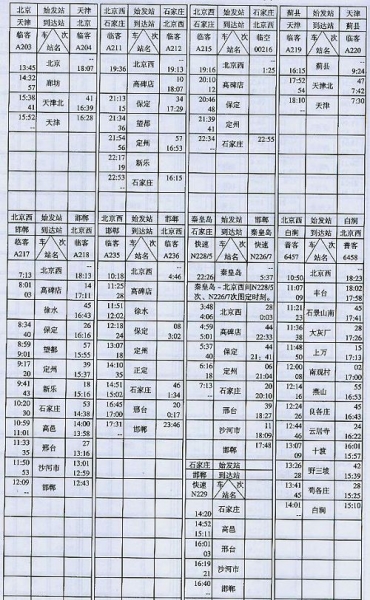 北京 始发站 天津
天津 到达站 北京
临客 车次 临客
A203 站名 A204
13:45 北京 18:07
14:32 57 廊坊
15:38 41 天津北 41 16:39
15:52 -- 天津 16:28
北京西 始发站 石家庄
石家庄 到达站 北京西
临客 车次 临客
A211 站名 A212
19:36 北京西 19:13
高碑店 10 18:07
21:13 15 保定 34 17:29
21:34 36 望都
21:54 56 定州 57 16:53
22:17 19 新乐
22:53 -- 石家庄 16:15
北京西 始发站 石家庄
石家庄 到达站 北京西
临客 车次 临空
A215 站名 00216
19:16 北京西 1:25
20:10 12 高碑店
20:46 48 保定
21:39 41 定州
22:34 -- 石家庄 22:55
蓟县 始发站 天津
天津 到达站 蓟县
临客 车次 临客
A219 站名 A220
16:15 蓟县 9:24
17:52 54 天津北 47 7:42
18:10 -- 天津 7:30
北京西 始发站 邯郸
邯郸 到达站 北京西
临客 车次 临客
A217 站名 A218
7:13 北京西 18:13
8:01 03 高碑店 14 17:11
徐水 45 16:43
8:34 40 保定 26 16:16
8:59 9:01 望都 57 15:55
9:17 20 定州 39 15:37
9:41 43 新乐 18 15:16
10:20 30 石家庄 53 14:38
10:59 11:01 高邑 14:00 13:58
11:33 35 邢台 27 13:16
11:50 53 沙河市 13:01 12:59
12:09 -- 邯郸 12:43
北京西 始发站 邯郸
邯郸 到达站 北京西
临客 车次 临客
A235 站名 A236
10:18 北京西 4:46
11:25 28 高碑店
11:51 12:02 徐水
12:18 24 保定 08 3:02
13:07 18 定州
14:10 35 正定
14:51 15:02 石家庄 46 1:34
16:45 17:00 邢台 20 0:17
17:31 -- 邯郸 23:46
秦皇岛 始发站 邯郸
石家庄 到达站 秦皇岛
快速 车次 快速
N228/5 站名 N226/7
22:26 秦皇岛 5:37
秦皇岛－北京西间N228/5
次、N226/7次图定时刻。
3:48 4:06 北京西 28 0:03
4:59 5:01 高碑店 44 22:33
5:37 40 保定 44 21:41
6:16 18 定州 06 21:04
7:13 -- 石家庄 20 20:10
邢台 39 18:27
沙河市 11 18:09
邯郸 17:48
石家庄 始发站
邯郸 到达站
快速 车次
N229 站名
14:20 石家庄
14:52 15:11 高邑
16:01 03 邢台
16:19 21 沙河市
16:40 -- 邯郸
北京西 始发站 白涧
白涧 到达站 北京西
普客 车次 普客
6457 站名 6458
10:50 北京西 18:23
11:07 09 丰台 18:02 17:58
11:21 23 石景山南 45 17:41
11:36 38 大灰厂 28 17:26
11:48 50 上万 15 17:13
12:00 08 南观村 02 17:00
12:14 16 燕山 55 16:53
12:24 26 良各庄 45 16:43
12:44 46 云居寺 24 16:22
13:07 09 十渡 16:01 15:57
13:26 28 野三坡 42 15:39
13:41 45 苟各庄 28 15:25
14:01 -- 白涧 15:10